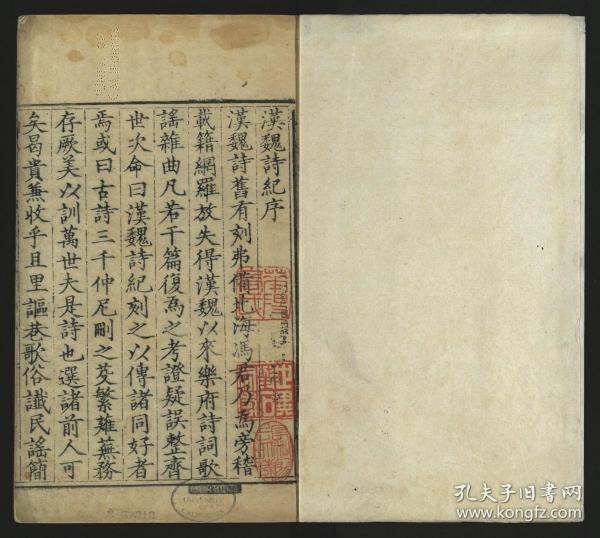 漢魏詩紀序
漢魏詩舊有刻弗備北海馮君乃為旁稽
載籍網羅放失得漢魏以來樂府詩詞歌
謠雜曲凡若干篇復為之考證疑誤整齊
世次命曰漢魏詩紀刻之以傳諸同好者
焉或曰古詩三千仲尼刪之芟繁薙蕪務
存厥美以訓萬世夫是詩也選諸前人可
矣曷貴兼收乎且里謳巷歌俗讖民謠簡
孔夫子旧书网
www.kongfz.com